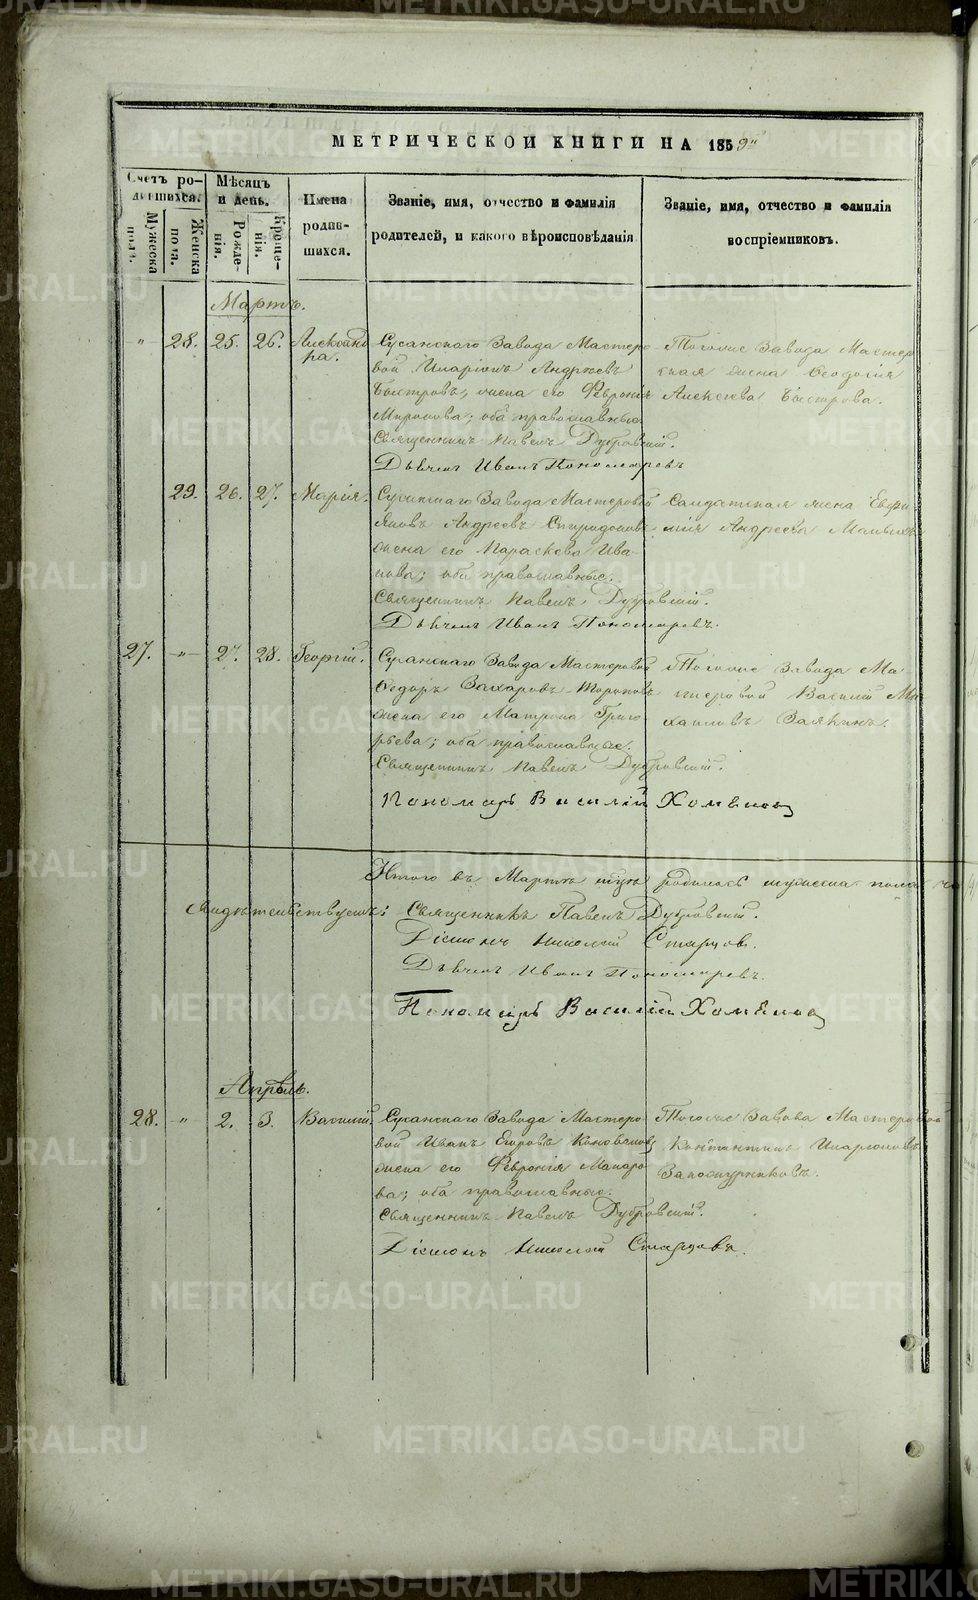 METRIKI.GASO-URAL.RU
МЕТРИЧЕСКОЙ КНИГИ НА 1859го
Счетъ ро-
дившихся.
Мужеска
пола.
Женска
пола.
Мѣсяцъ
и день.
Рожде-
нія.
Креще-
нія.
Имена
родив-
шихся.
Званіе, имя, отчество и фамилія
родителей, и какого вѣроисповѣданія
Званіе, имя, отчество и фамилія
воспріемниковъ.
Мартъ.
" 28. 25. 26. Александ
ра.
Сусанскаго Завода Мастеро
вой Иларіонъ Андреевъ
Быстровъ, жена его Февронія
Миронова; оба православные.
Священникъ Павелъ Дубровскій.
Дьячекъ Иванъ Пономаревъ
Тогоже Завода Мастер
ская жена Ѳеодосія
Алексѣева Быстрова.
29. 26. 27. Марія.
Сусанскаго Завода Мастеровой
Яковъ Андреевъ Спиридоновъ
жена его Параскева Ива
нова; оба православные.
Священникъ Павелъ Дубровскій.
Дьячекъ Иванъ Пономаревъ.
Салдатская жена Евфи
мія Андреева
27. " 27. 28. Георгій.
Сусанскаго Завода Мастеровой
Ѳедоръ Захаровъ Тороповъ
жена его Матрона Григо
рьева; оба православные.
Священникъ Павелъ Дубровскій.
Пономарь Василій Хомяковъ
Тогоже Завода Ма
стеровой Василій Ми
хаиловъ Заякинъ.
Итого въ Мартѣ родилось мужеска пола
Свидѣтельствуемъ: Священникъ Павелъ Дубровскій.
Діаконъ Николай Старцовъ.
Дьячекъ Иванъ Пономаревъ.
Пономарь Василій Хомяковъ
Апрѣль.
28. " 2. 3. Василій.
Сусанскаго Завода Мастеро
вой Иванъ Егоровъ Коноваловъ
жена его Февронія Макаро
ва; оба православные.
Священникъ Павелъ Дубровскій.
Діаконъ Николай Старцовъ.
Тогоже Завода Мастеровой
Константинъ Иларіоновъ